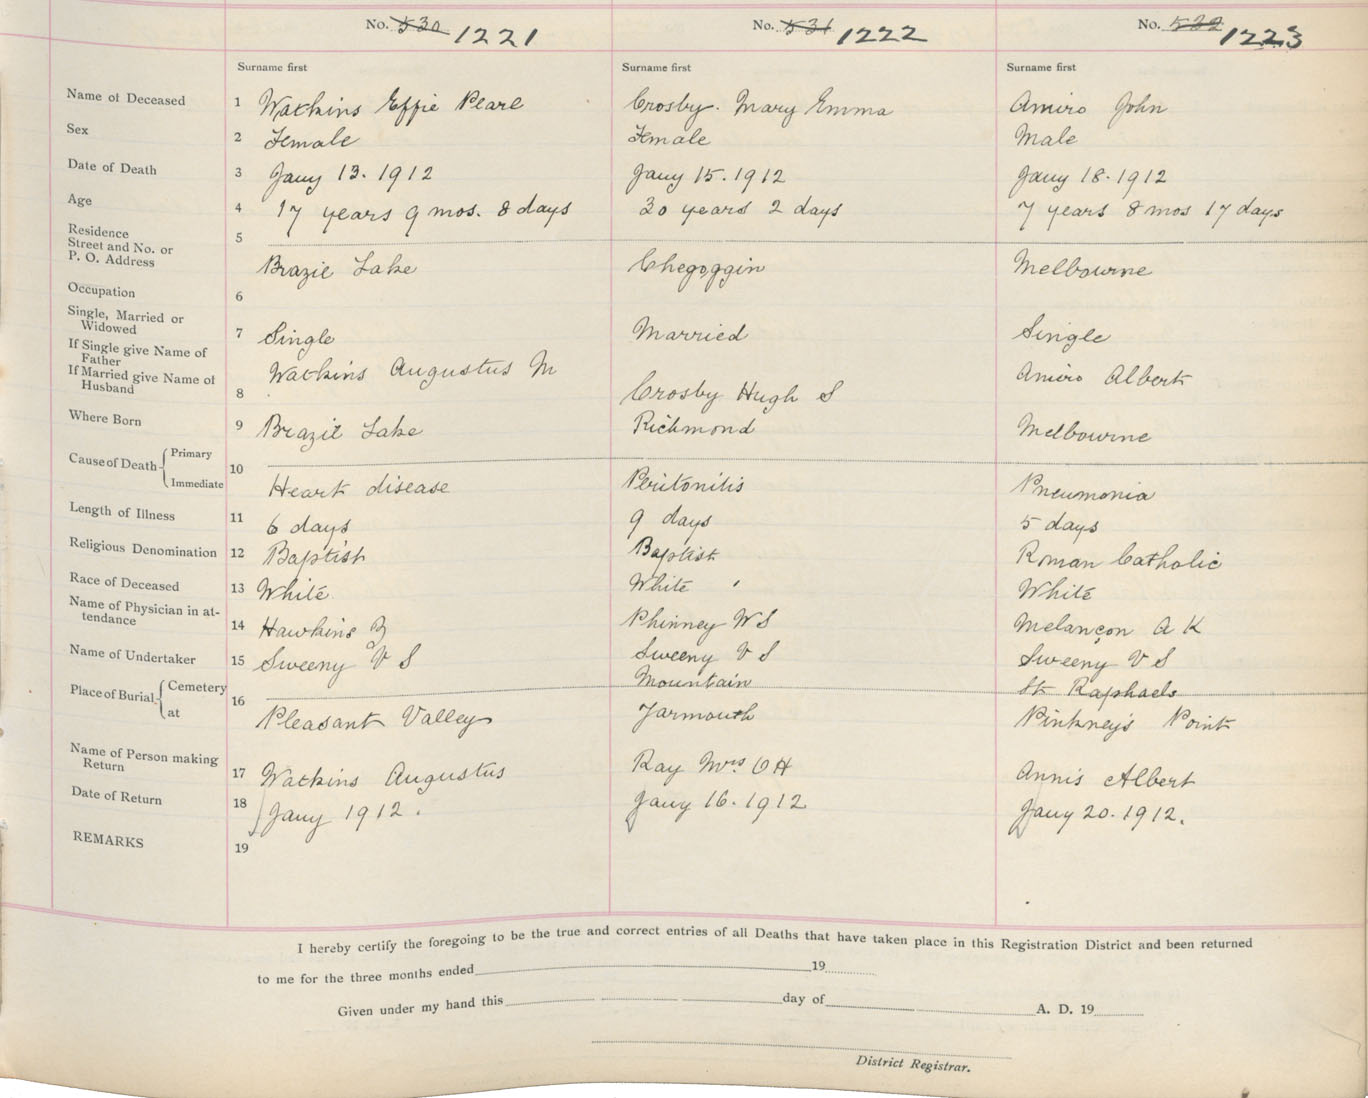 No. 530 1221 No. 531 1222 No. 532 1223
Surname first Surname first Surname first
Name of Deceased 1 Watkins Effie Pearl Crosby. Mary Emma Amiro John
Sex 2 Female Female Male
Date of Death 3 Jany 13. 1912 Jany 15. 1912 Jany 18. 1912
Age 4 17 years 9 mos. 8 days 30 years 2 days 7 years 8 mos 17 days
Residence
Street and No. or
P. O. Address 5 Brazil Lake Chegoggin Melbourne
Occupation 6
Single, Married or
Widowed 7 Single Married Single
If Single give Name of
Father Watkins Augustus M Amiro Albert
If Married give Name of
Husband 8 Crosby Hugh S
Where Born 9 Brazil Lake Richmond Melbourne
Cause of Death Primary
10
Immediate Heart disease Peritonitis Pneumonia
Length of Illness 11 6 days 9 days 5 days
Religious Denomination 12 Baptist Baptist Roman Catholic
Race of Deceased 13 White White White
Name of Physician in at-
tendance 14 Hawkins Phinney W S Melançon A K
Name of Undertaker 15 Sweeny V S Sweeny V S Sweeny V S
Place of Burial Cemetery Mountain St Raphaels
16
at Pleasant Valley Yarmouth Pinkney's Point
Name of Person making
Return 17 Watkins Augustus Ray Mrs. O H Annis Albert
Date of Return 18 Jany 1912. Jany 16. 1912 Jany 20. 1912.
REMARKS 19
I hereby certify the foregoing to be the true and correct entries of all Deaths that have taken place in this Registration District and been returned
to me for the three months ended 19
Given under my hand this day of A. D. 19
District Registrar.